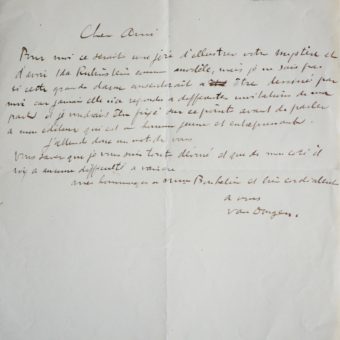 Cher Ami
Pour moi ce serait une joie d'illustrer votre mystère et
d'avoir Ida Rubinstein comme modèle, mais je ne sais pas
si cette grande dame consentirait à être dessiné par
moi car jamais elle n'a repondu a differents invitations de ma
part et je voudrais être fixé sur ce point avant de parler
a mon editeur qui est un homme jeune et entreprenant.
J'attends donc un mot de vous
Vous savez que je vous suis tout dévoué et que de mon coté il
n'y a aucune difficulté a vaincre
avec hommages a Mme et bien cordialement
a vous
van Dongen.